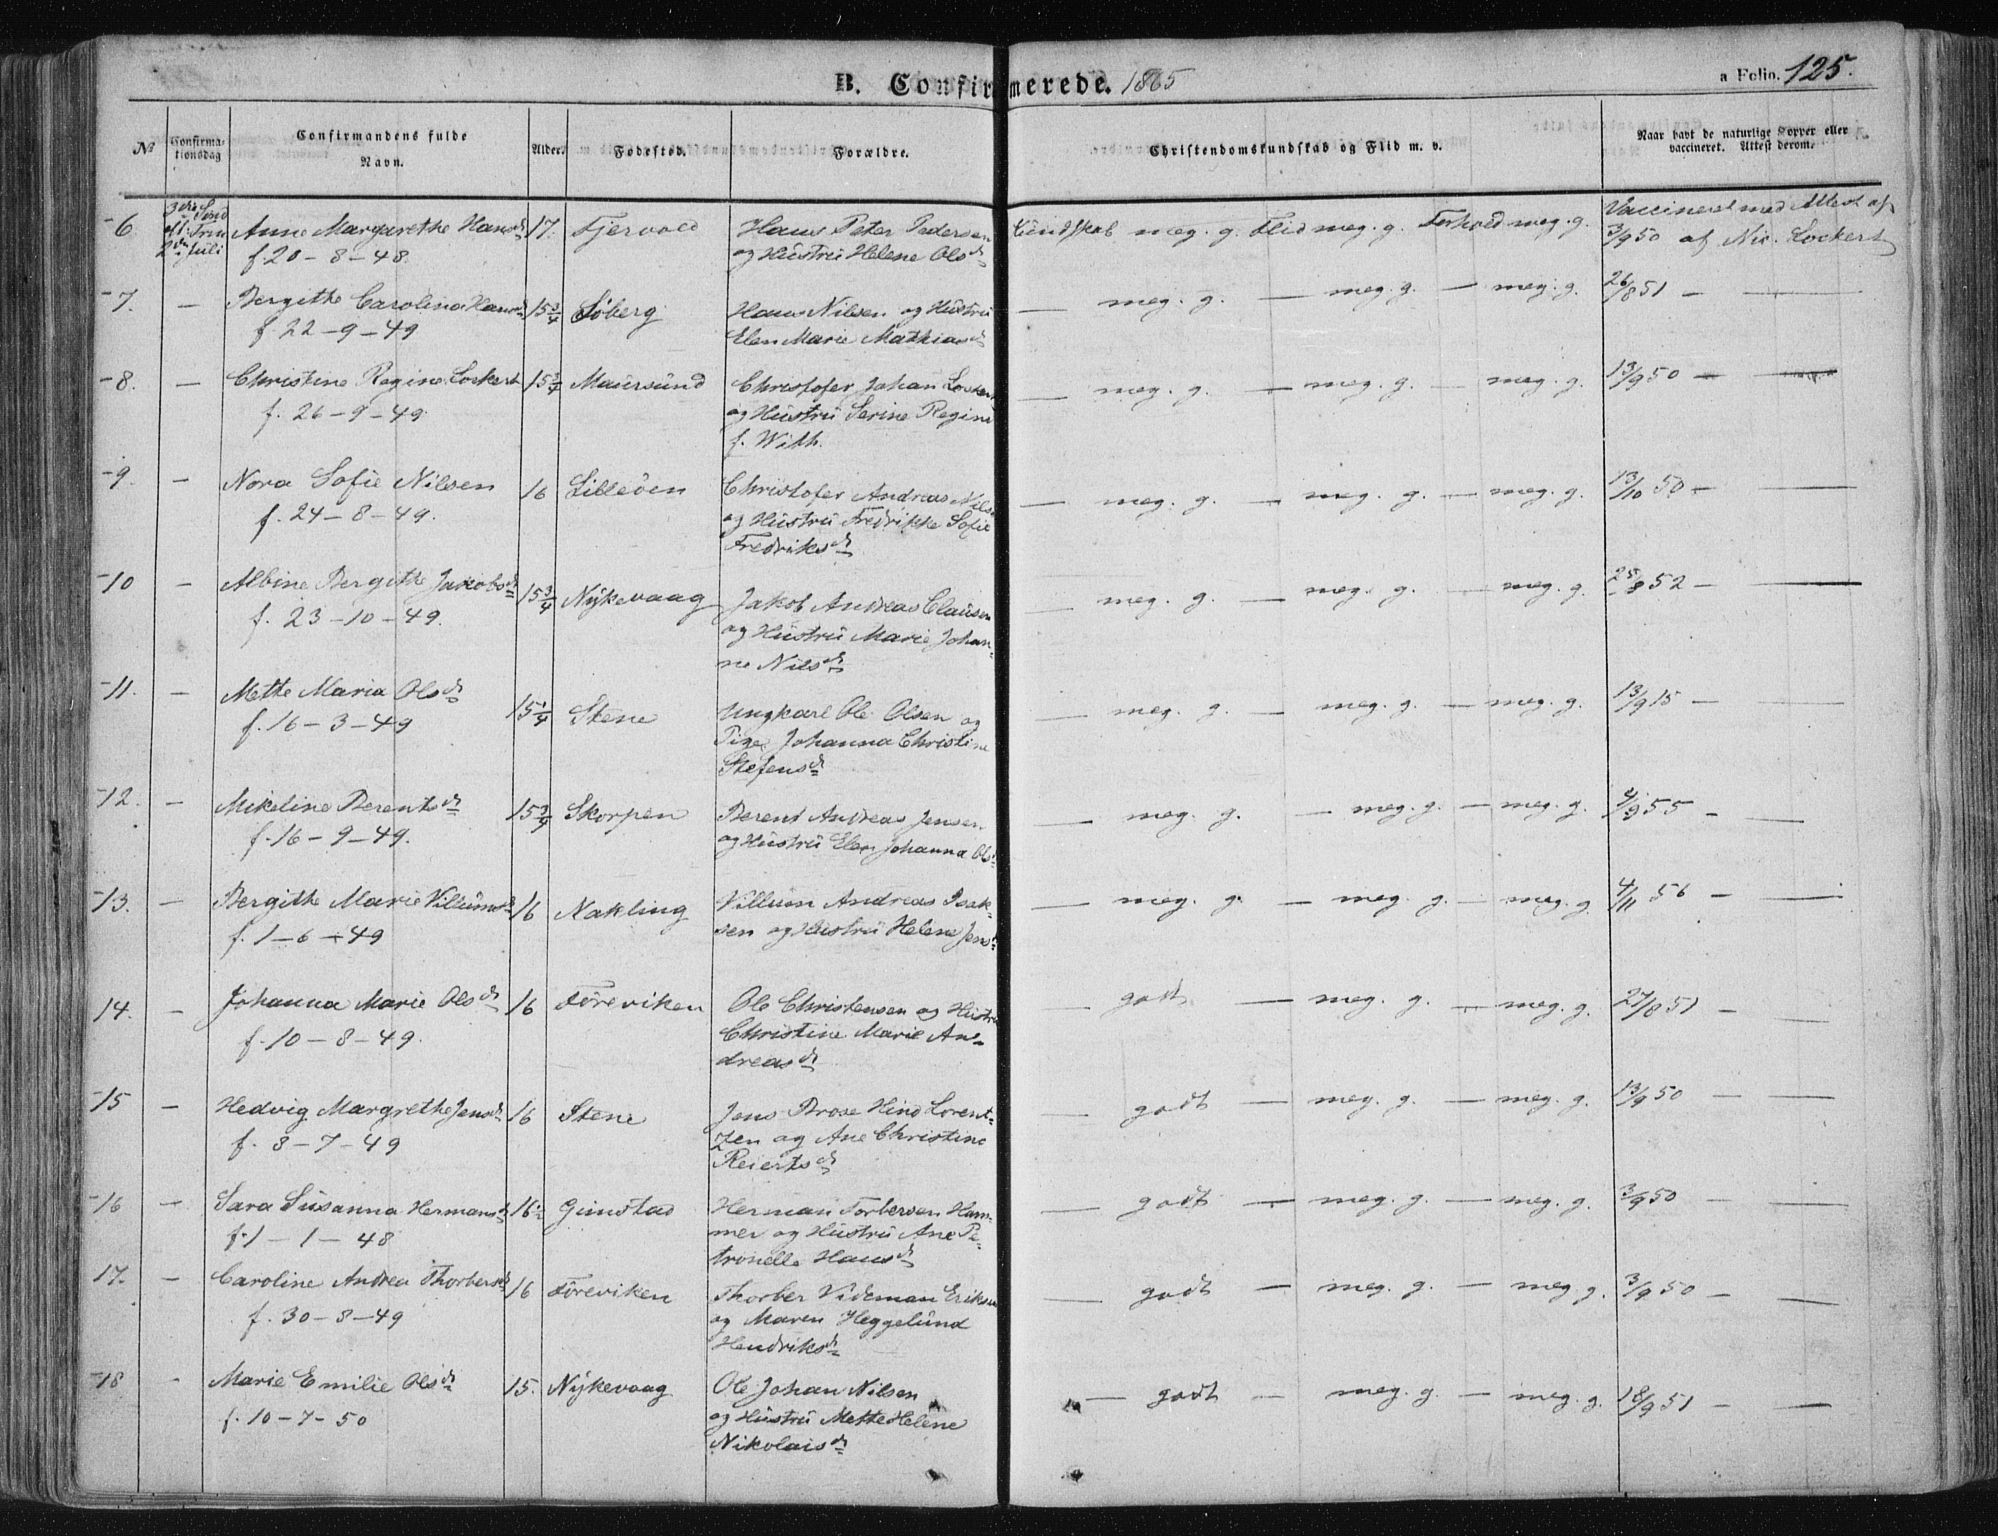 B. Confirmerede. 1865
a Folio. 125.
No
Confirma-
tionsdag
Confirmandens fulde
Navn.
Alder.
Fødested.
Forældre.
Christendomskundskab og Flid m. v.
Naar havt de naturlige Kopper eller
vaccineret. Attest derom.
6 3die Sønd eft. Trin 2den Juli Anne Margarethe Hansd. 17. Fjervold Hans Peter Pedersen Kundskab meg. g. Flid meg. g. Forhold meg. g. Vaccineret med Attest af
f. 20-8-48 og Hustrü Helene Olsd. 3/9 50 af Nic. Lockert
7. — Bergithe Carolina Hansd. 15 3/4 Söberg Hans Nilsen og Hustrü — meg. g. — meg. g. — meg. g. 26/8 51 — —
f. 22-9-49 Elen Marie Mathiasd.
8. — Christine Regine Lockert 15 3/4 Maursund Christofer Johan Lockert — meg. g. — meg. g. — meg. g. 13/9 50 — —
f. 26-9-49. og Hustrü Serine Regine
f. With.
9. — Nora Sofie Nilsen 16 Lilleöen Christofer Andreas Nils — meg. g. — meg. g. — meg. g. 13/10 50 — —
f. 24-8-49. og Hustrü Fredrikke Sofie
Fredriksd.
10 — Albine Bergithe Jakobsd. 15 3/4 Nÿkevaag Jakob Andreas Clausen — meg. g. — meg. g. — meg. g. 25/8 52 — —
f. 23-10-49. og Hustrü Marie Johan-
ne Nilsd.
11. — Mette Maria Olsd. 15 1/4 Stene Ungkarl Ole Olsen og — meg. g. — meg. g. — meg. g. 13/9 15 — —
f. 16-3-49 Pige Johanna Christine
Stefensd.
12. — Mikeline Berentsd. 15 3/4 Skorpen Berent Andreas Jensen — meg. g. — meg. g. — meg. g. 4/9 55 — —
f. 16-9-49. og Hustrü Elen Johanna Ols
13. — Bergithe Marie Villümsd. 16 Nakling Villum Andreas Isak- — meg. g. — meg. g. — meg. g. 4/11 56 — —
f. 1-6-49 sen og Hustrü Helene Jens
14. — Johanna Marie Olsd. 16 Föreviken Ole Christensen og Hustrü — godt — meg. g. — meg. g. 27/8 51 — —
f. 10-8-49. Christine Marie An-
dreasd.
15 — Hedvig Margrethe Jensd. 16 Stene Jens Brose Hind Lorent- — godt — meg. g. — meg. g. 13/9 50 — —
f. 8-7-49 zen og Ane Christine
Reiertsd.
16 — Sara Susanna Hermansd. 16 1/2 Gimstad Herman Torbersen Ham- — godt — meg. g. — meg. g. 3/9 50 — —
f. 1-1-48 mer og Hustrü Ane Pe-
tronelle Hansd.
17. — Caroline Andrea Thorbersd. 16 Föreviken Thorber Videman Eriksen — godt — meg. g. — meg. g. 3/9 50 — —
f. 30-8-49 og Maren Heggelund
Hendriksd.
18 — Marie Emilie Olsd. 15. Nÿkevaag Ole Johan Nilsen — godt — meg. g. — meg. g. 18/9 51 — —
f. 10-7-50 og Hustrü Mette Helene
Nikolaisd.